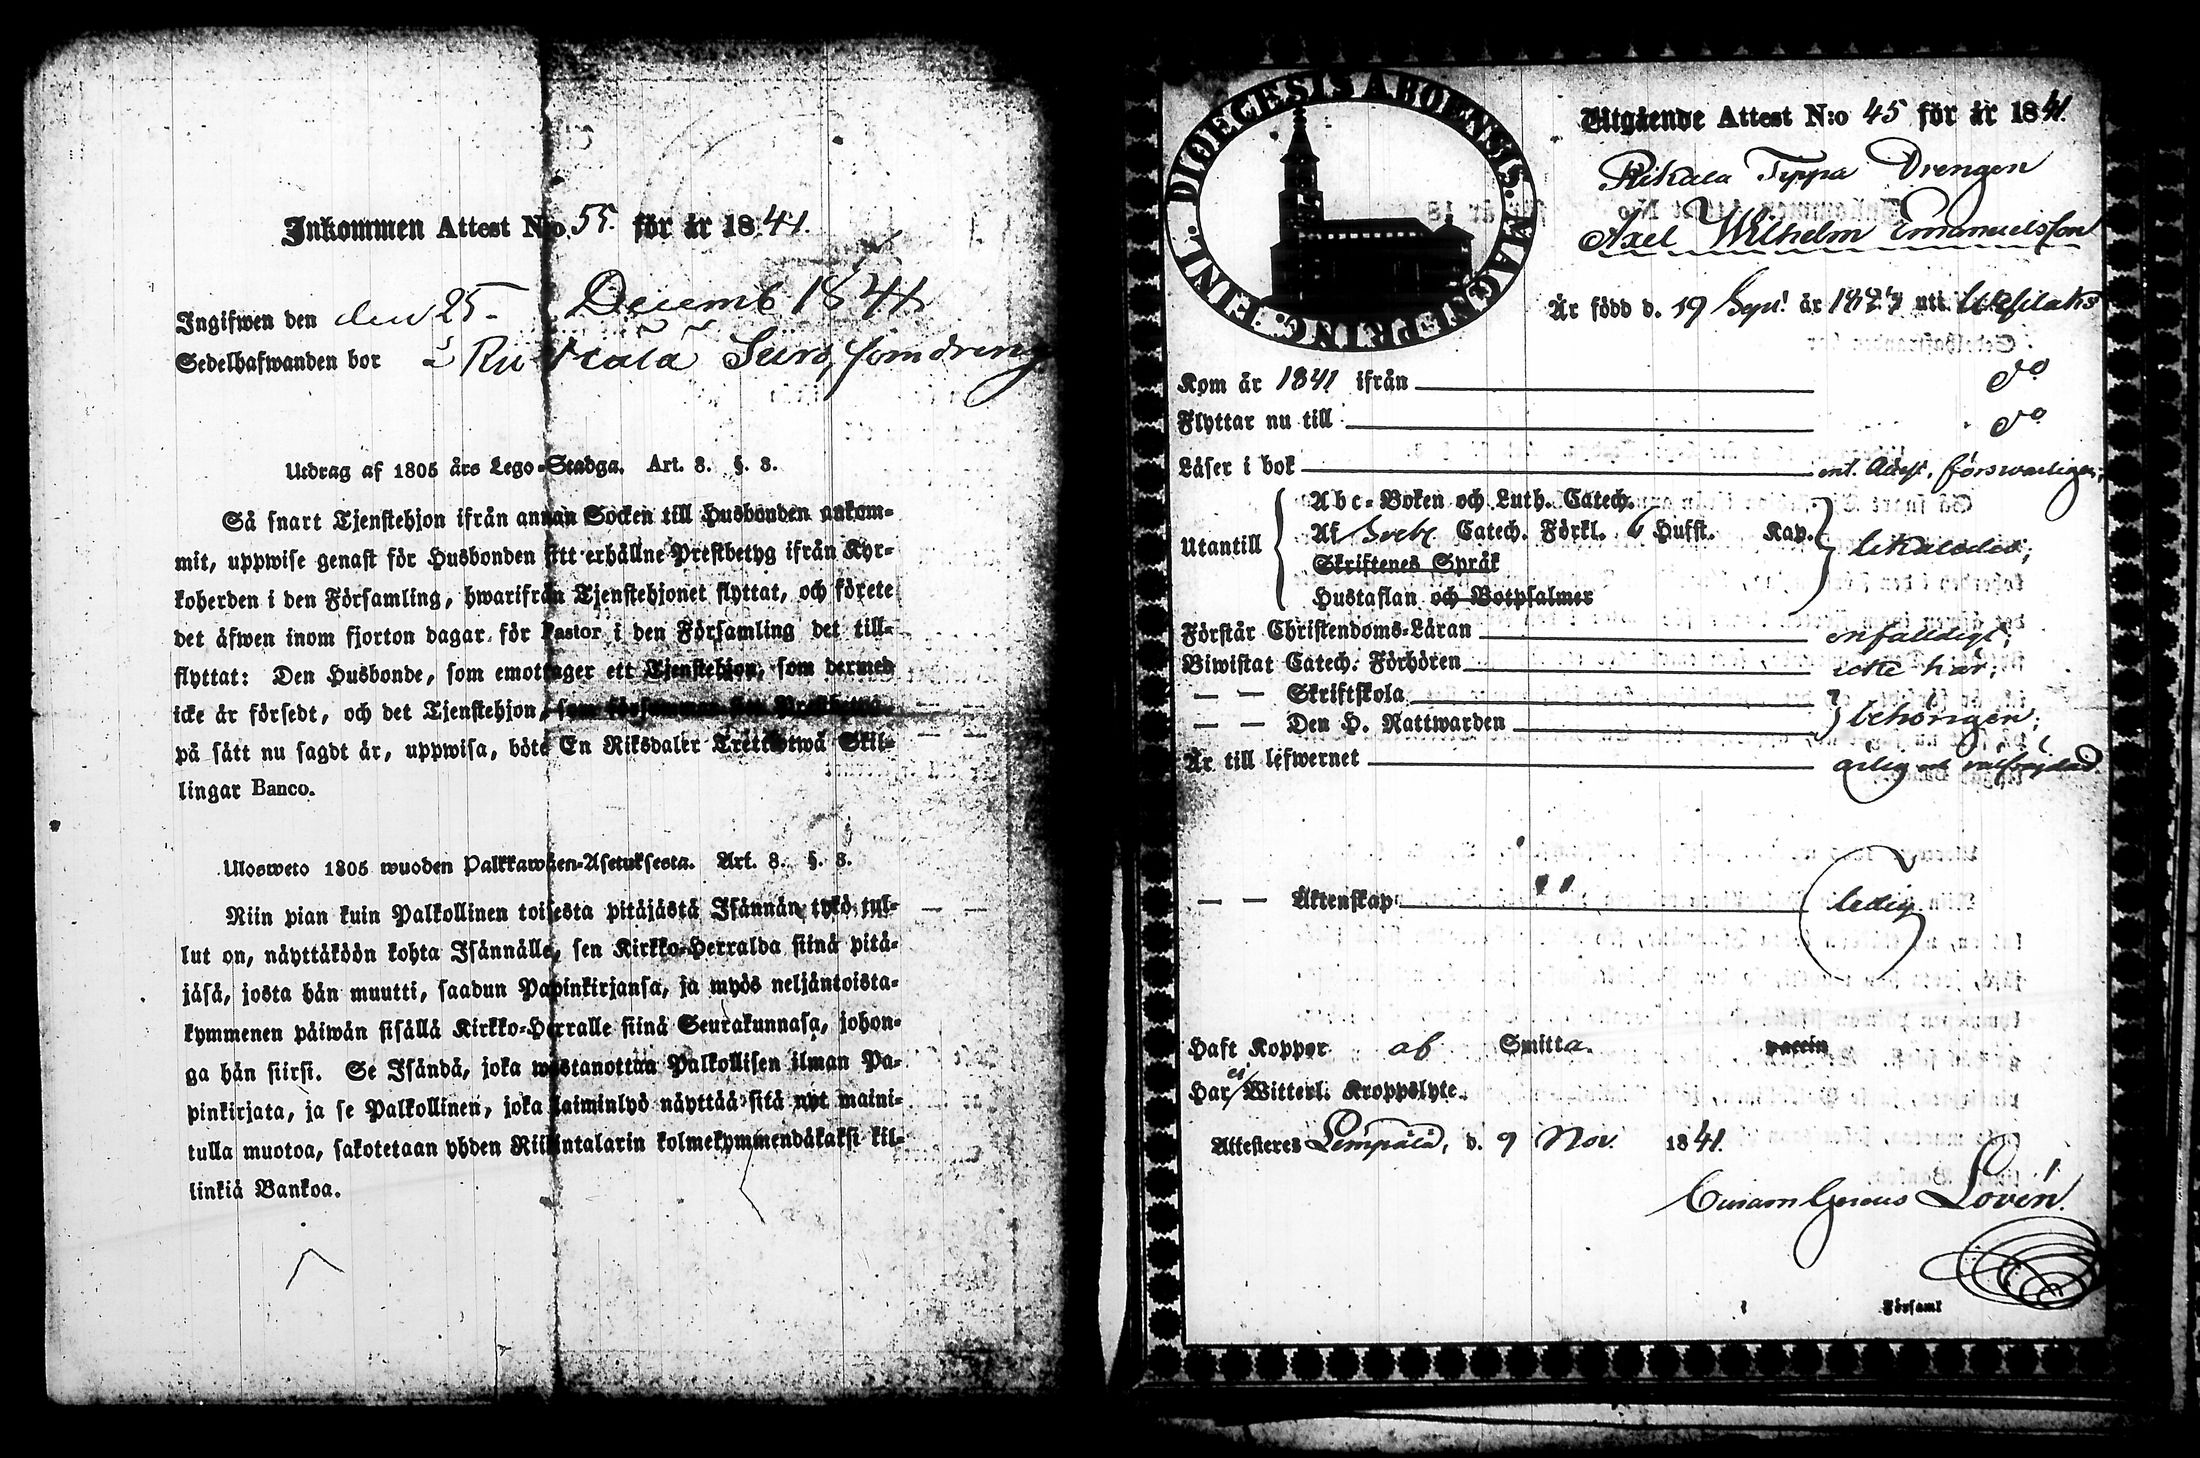 Inkommen Attest N:o 55. för år 1841.
Ingifwen den den 25. Decemb 1841
Sedelhafwanden bor som dreng
Utdrag af 1805 års Lego-Stadga. Art. 8. §. 8.
Så snart Tjenstehjon ifrån annan Socken till Husbonden ankom-
mit, uppwise genast för Husbonden sitt erhållne Prestbetyg ifrån Kyr-
koherden i den Församling, hwarifrån Tjenstehjonet flyttat, och förete
det äfwen inom fjorton dagar för Pastor i den Församling det till-
flyttat: Den Husbonde, som emottager ett Tjenstehjon, som dermed
icke är försedt, och det Tjenstehjon, som försummar sitt Prestbetyg
på sätt nu sagdt är, uppwisa, böte En Riksdaler Trettiotwå Skil-
lingar Banco.
Ulosweto 1805 wuoden Palkkawäen-Asetuksesta. Art. 8. §. 8.
Niin pian kuin Palkollinen toisesta pitäjästä Isännän tykö tul-
lut on, näyttäköön kohta Isännälle, sen Kirkko-Herralda siinä pitä-
jäsä, josta hän muutti, saadun Papinkirjansa, ja myös neljäntoista-
kymmenen päiwän sisällä Kirkko-Herralle siinä Seurakunnasa, johon-
ga hän siirsi. Se Isändä, joka wastanottaa Palkollisen ilman Pa-
pinkirjata, ja se Palkollinen, joka laiminlyö näyttää sitä nyt maini-
tulla muotoa, sakotetaan yhden Riikintalarin kolmekymmendäkaksi kil-
linkiä Bankoa.
DIOECESIS ABOENSIS. MAGN. PRINC. FINL.
Utgående Attest N:o 45 för år 1841.
Rikala Typpä Drengen
Axel Wilhelm Emanuelsson
Är född d. 19 Sept. år uti
Kom år 1841 ifrån do
Flyttar nu till do
Läser i bok enl. Attest, förswarligen;
Utantill
Abc-Boken och Luth. Catech.
Af Sveb. Catech. Förkl. 6 Hufst. Kap. likaledes;
Skriftenes Språk
Hustaflan och Botpsalmer
Förstår Christendoms-Läran enfaldigt;
Biwistat Catech. Förhören icke här;
— — Skriftskola
— — Den H. Nattwarden behörigen;
Är till lefwernet ärlig och
— — Äktenskap ledig
Haft Koppor af Smitta. vaccin
Har ej Witterl. Kroppslyte.
Attesteres Lempälä, d. 9 Nov. 1841.
Curam Gerens Lovén.
Församl